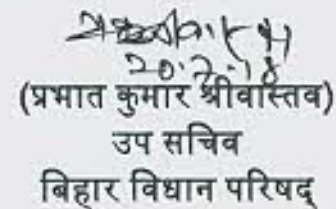 20.7.18
(प्रभात कुमार श्रीवास्तव)
उप सचिव
बिहार विधान परिषद्